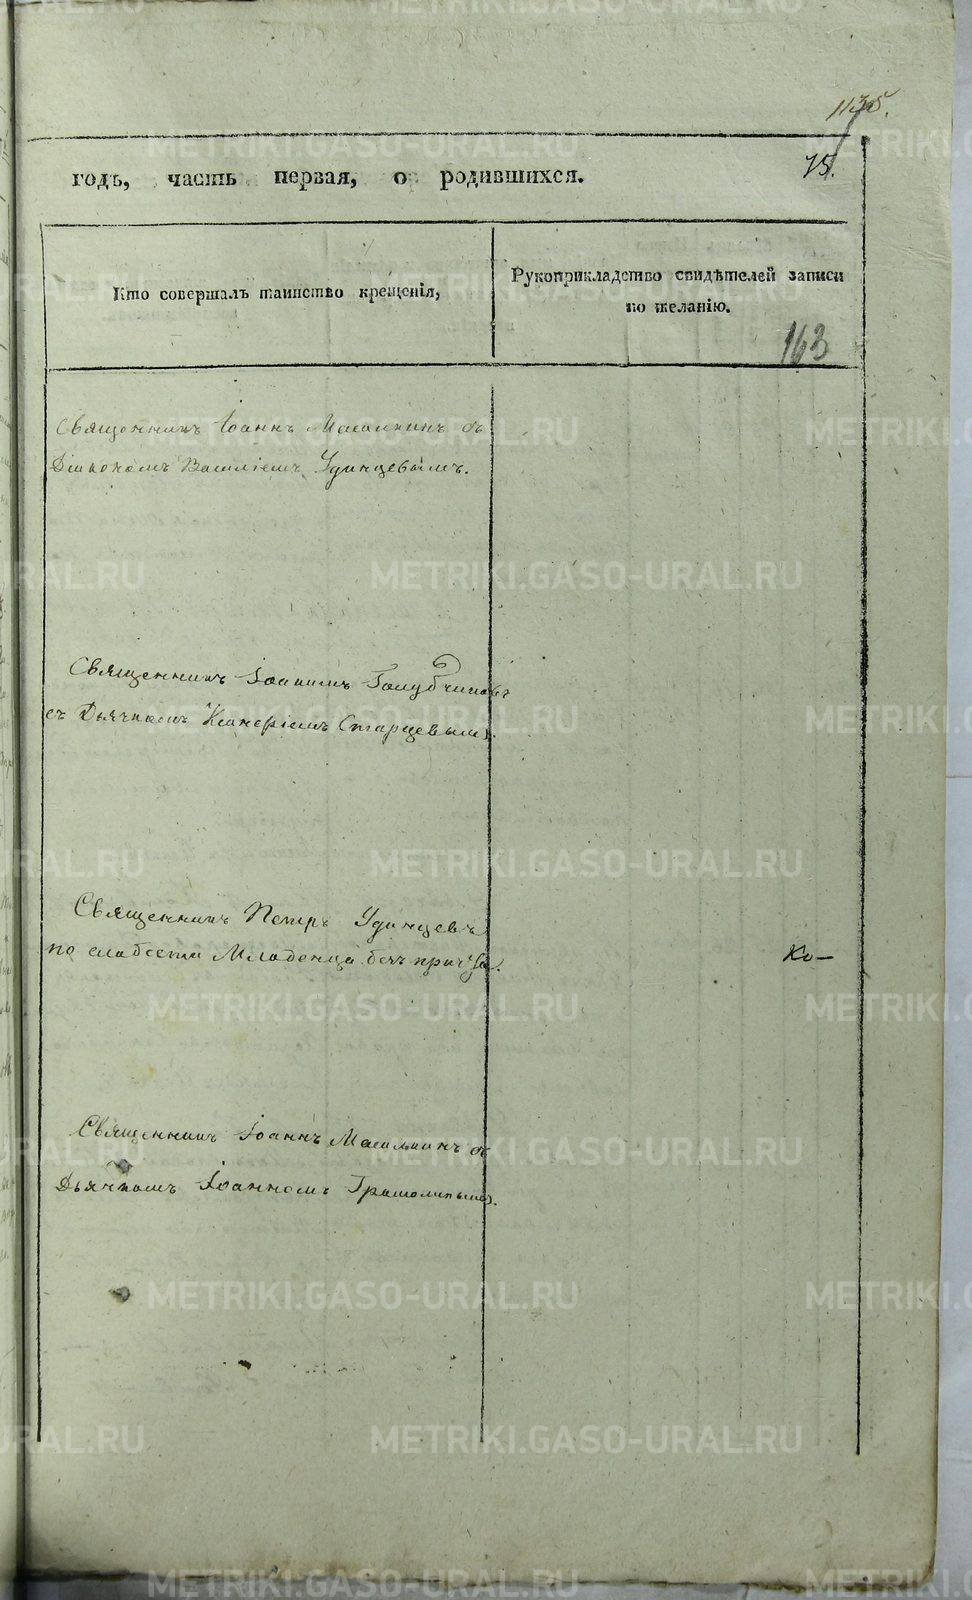 1135.
75.
годъ, часть первая, о родившихся.
Кто совершалъ таинство крещенія,
Рукоприкладство свидѣтелей записи
по желанію.
163
Священникъ Іоаннъ съ
Діакономъ Василіемъ Удинцевымъ.
Священникъ Іоакимъ Голубчиковъ
съ Дьячкомъ Старцевымъ.
Священникъ Петръ Удинцевъ
по слабости Младенца безъ причта.
Ко—
Священникъ Іоаннъ съ
Дьячкомъ Іоанномъ
METRIKI.GASO-URAL.RU